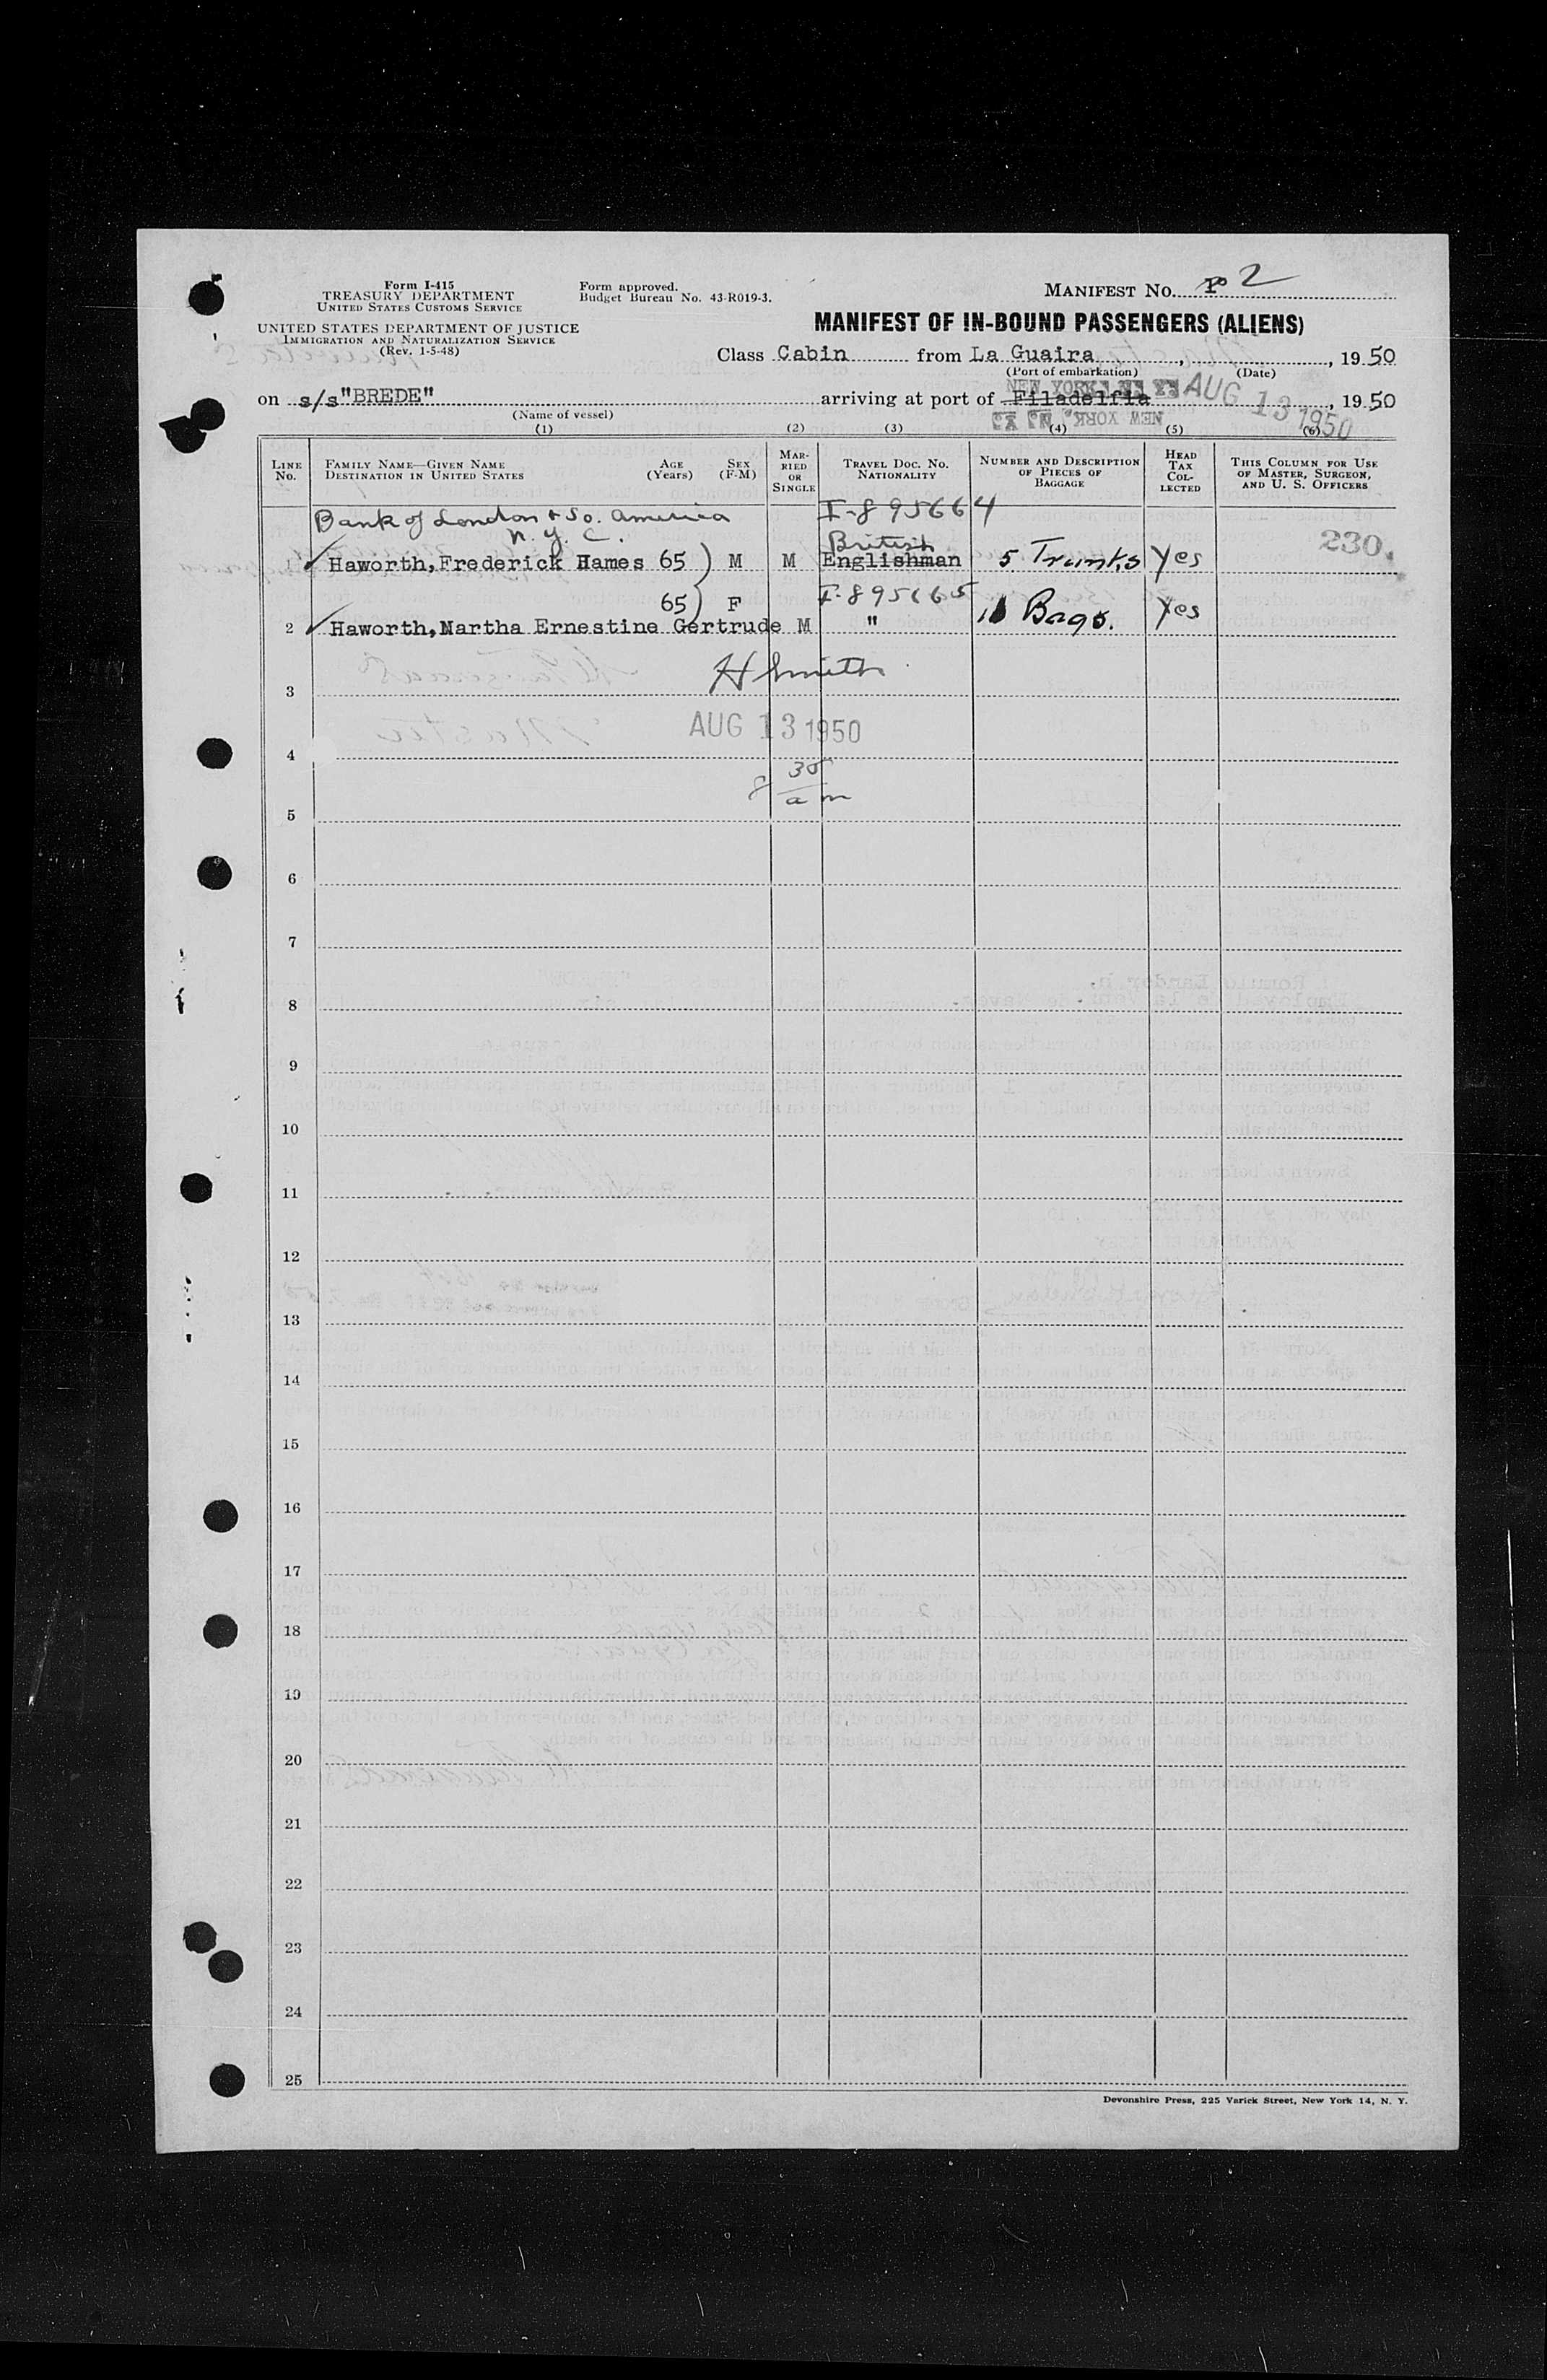 Form I-415
TREASURY DEPARTMENT
UNITED STATES CUSTOMS SERVICE
UNITED STATES DEPARTMENT OF JUSTICE
IMMIGRATION AND NATURALIZATION SERVICE
(Rev. 1-5-48)
Form approved.
Budget Bureau No. 43-R019-3.
MANIFEST No. 2
MANIFEST OF IN-BOUND PASSENGERS (ALIENS)
Class Cabin from La Guaira, 1950
(Port of embarkation) (Date)
NEW YORK, AUG 13 1950
on s/s "BREDE" arriving at port of Filadelfia, 1950
(Name of vessel)
NEW YORK,
(1) (2) (3) (4) (5) (6)
LINE No. FAMILY NAME—GIVEN NAME DESTINATION IN UNITED STATES AGE (Years) SEX (F-M) MARRIED OR SINGLE TRAVEL DOC. NO. NATIONALITY NUMBER AND DESCRIPTION OF PIECES OF BAGGAGE HEAD TAX COLLECTED THIS COLUMN FOR USE OF MASTER, SURGEON, AND U. S. OFFICERS
Bank of London & So. America I-895664
N.Y.C. British 230.
1 Haworth, Frederick Hames 65 M M Englishman 5 Trunks Yes
65 F I-895665 Bags. Yes
2 Haworth, Martha Ernestine Gertrude M "
H Smith
3
AUG 13 1950
4
8 30
a m
5
6
7
8
9
10
11
12
13
14
15
16
17
18
19
20
21
22
23
24
25
Devonshire Press, 225 Varick Street, New York 14, N. Y.